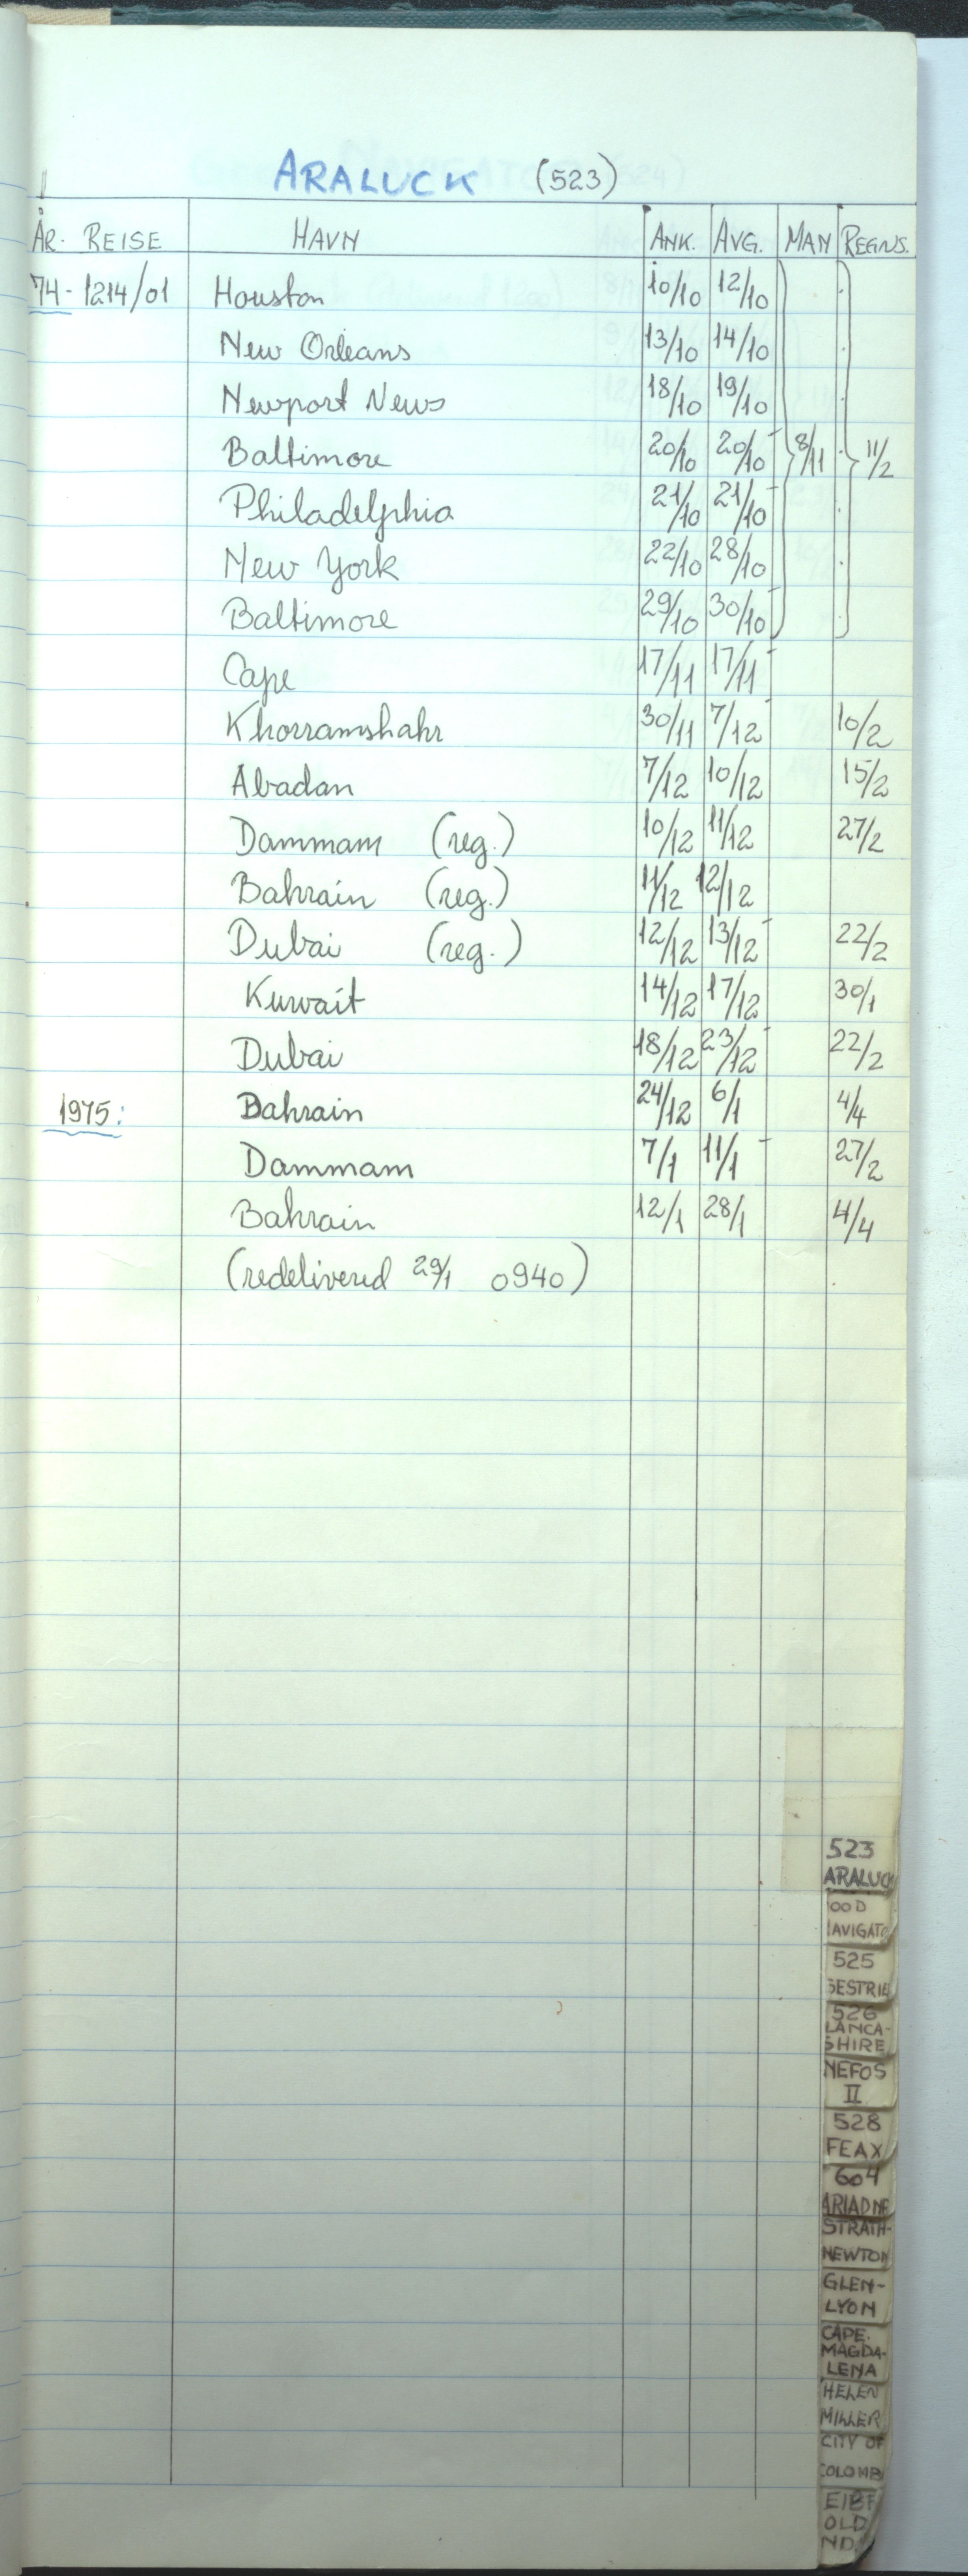 ARALUCK (523)
ÅR. REISE HAVN ANK. AVG. MAN REGNS.
74 - 1214/01 Houston 10/10 12/10
New Orleans 13/10 14/10
Newport News 18/10 19/10
Baltimore 20/10 20/10 8/11 11/2
Philadelphia 21/10 21/10
New York 22/10 28/10
Baltimore 29/10 30/10
Cape 17/11 17/11
Khorramshahr 30/11 7/12 10/2
Abadan 7/12 10/12 15/2
Dammam (reg.) 10/12 11/12 27/2
Bahrain (reg.) 11/12 12/12
Dubai (reg.) 12/12 13/12 22/2
Kuwait 14/12 17/12 30/1
Dubai 18/12 23/12 22/2
1975: Bahrain 24/12 6/1 4/4
Dammam 7/1 11/1 27/2
Bahrain 12/1 28/1 4/4
(redelivered 29/1 0940)
523
ARALUCK
OOD
AVIGATO
525
SESTRIE
526
LANCA-
SHIRE
NEFOS
II
528
FEAX
604
ARIADNE
STRATH-
NEWTON
GLEN-
LYON
CAPE.
MAGDA-
LENA
HELEN
MILLER
CITY OF
COLOMB
OLD
ND